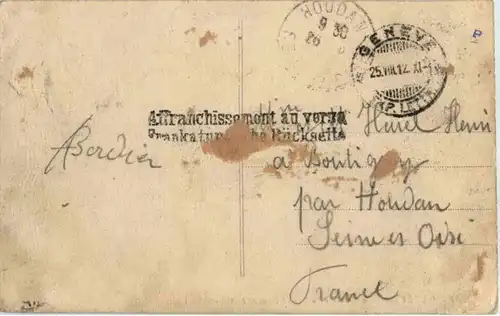 HOUDAN
9 30
26
GENÈVE
25.VIII.12. XI-
EXP. LETTR.
Affranchissement au verso
Frankatur siehe Rückseite
Hurel Henri
à Boutigny
par Houdan
Seine et Oise
France